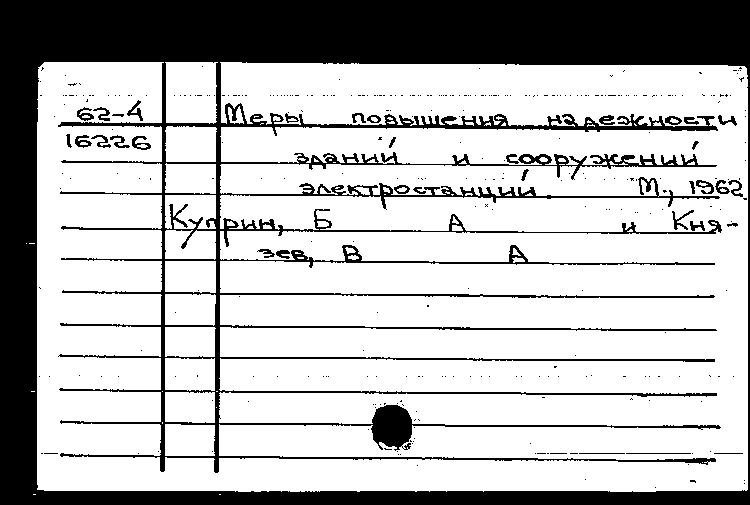 62-4 Меры повышения надежности
16226 зданий и сооружений
электростанций. М., 1962.
Куприн, Б А и Кня-
зев, В А